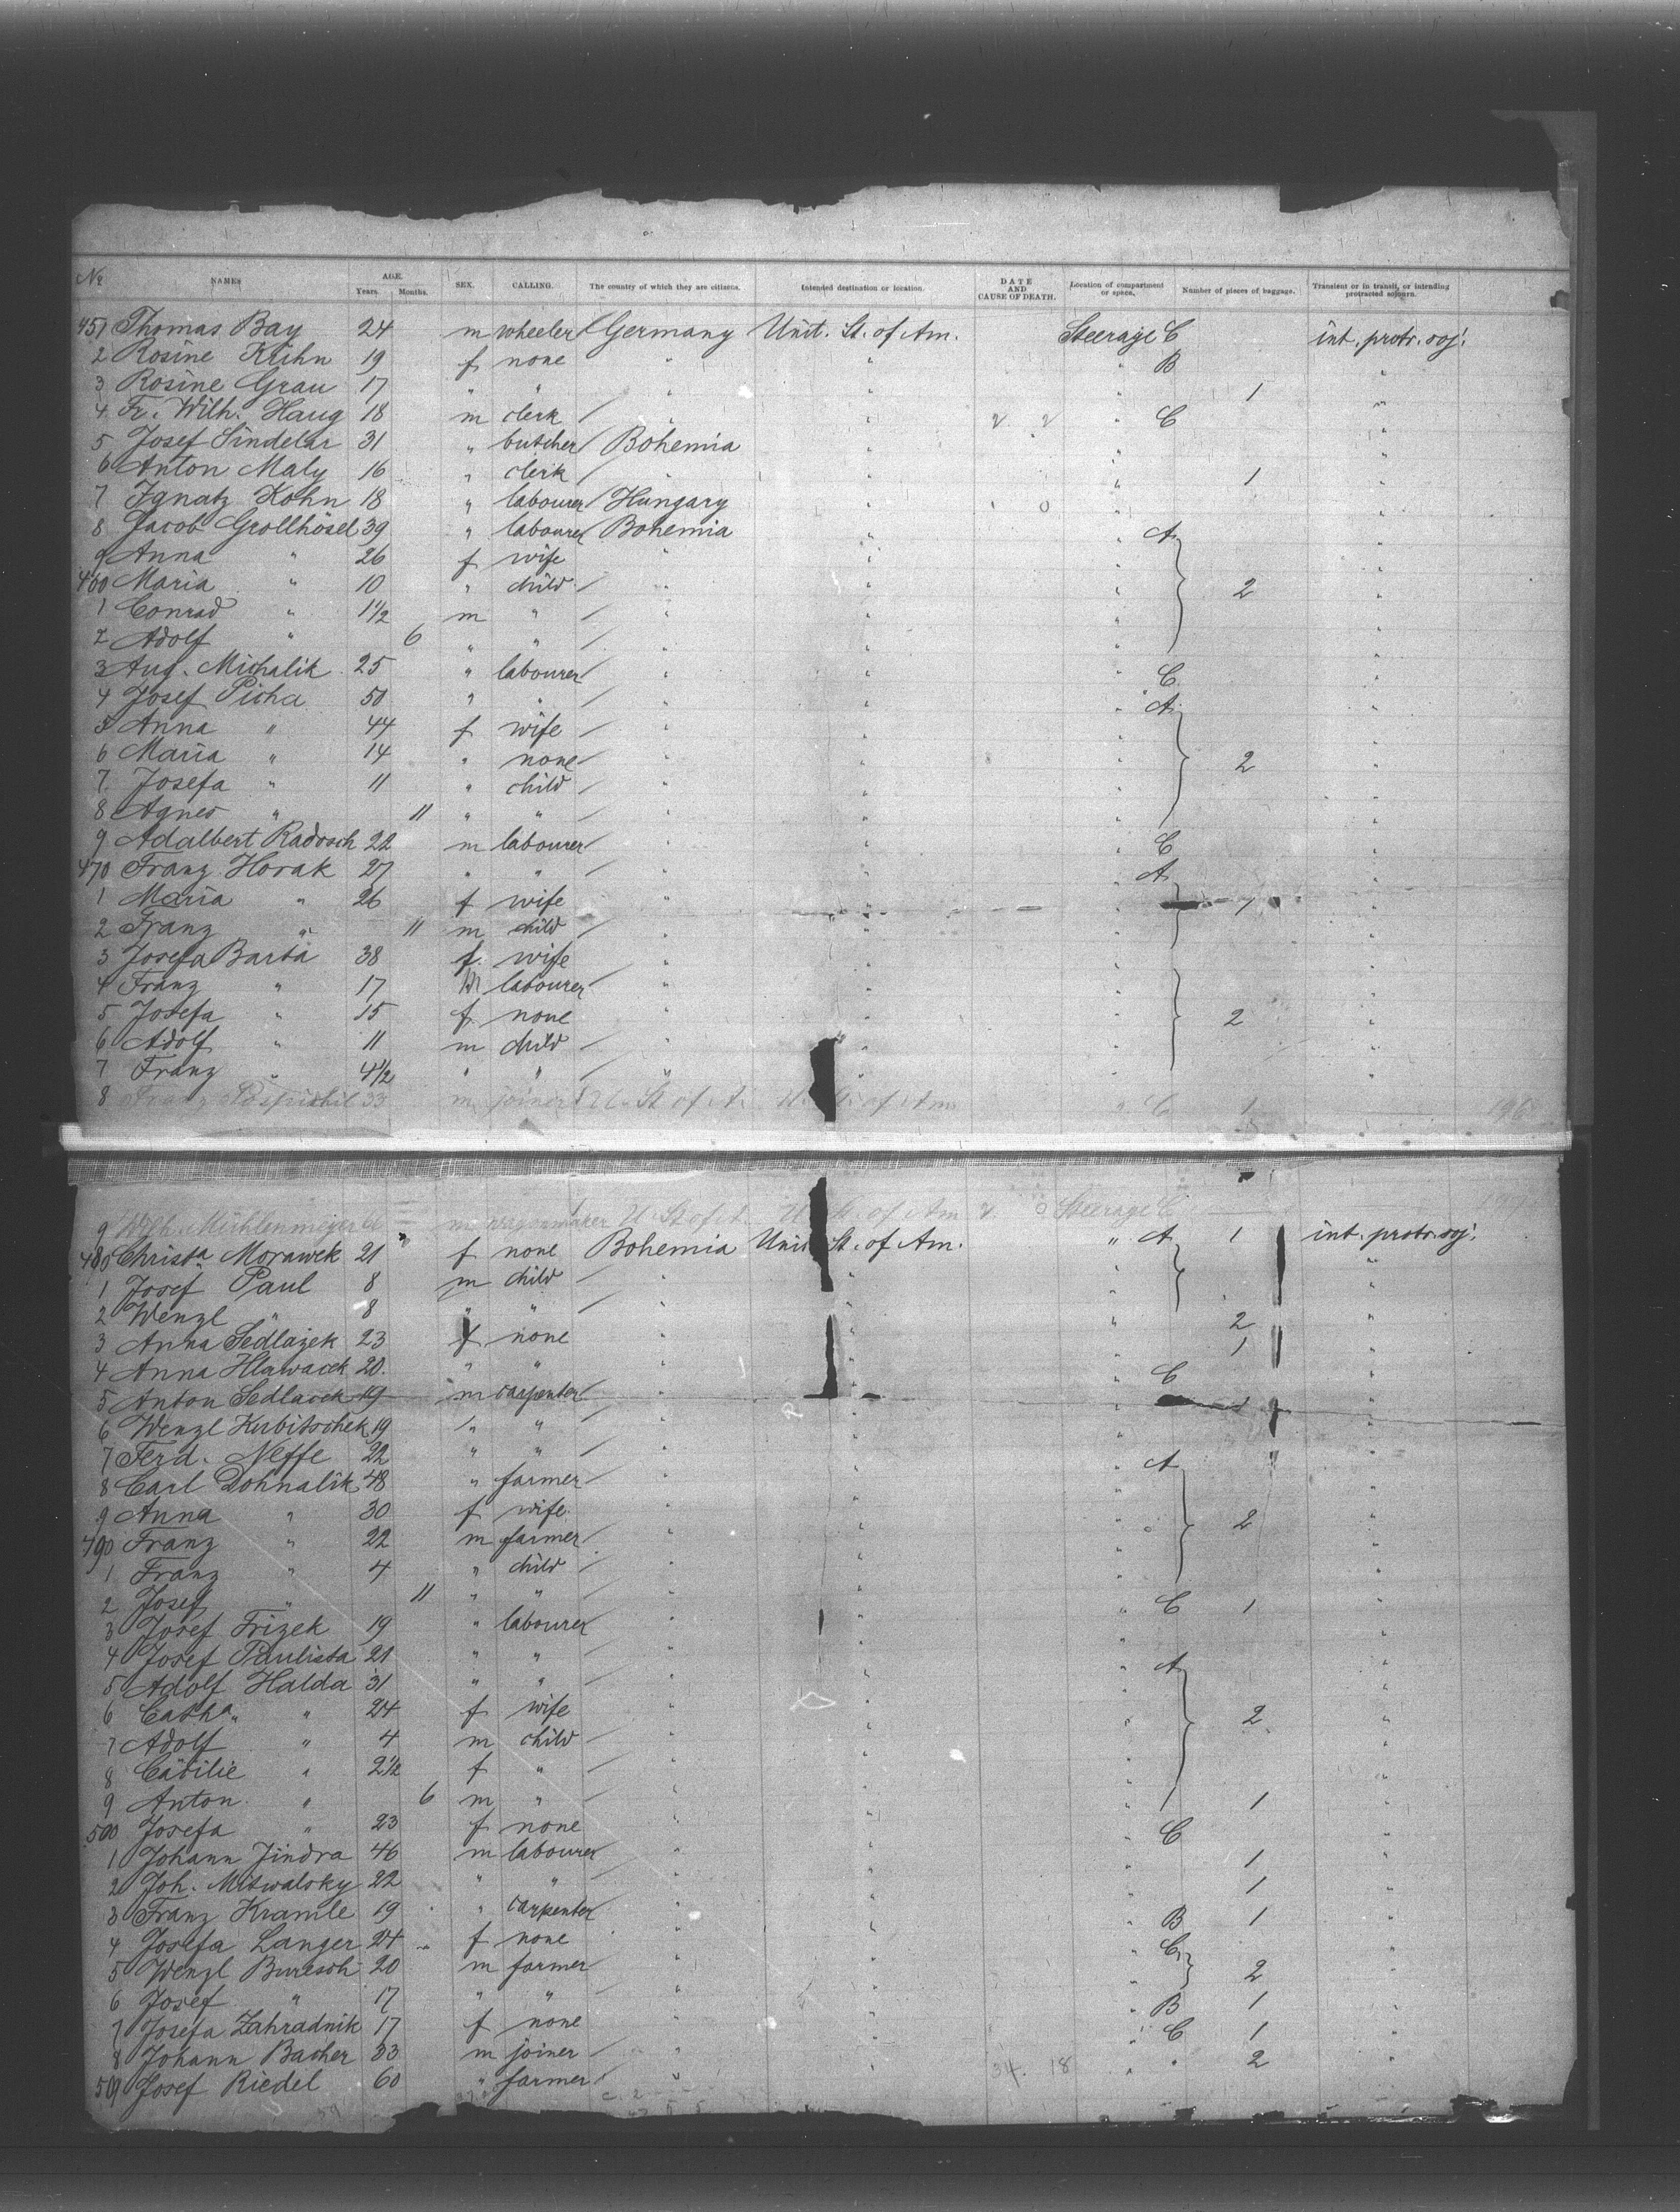 No NAMES AGE. Years. Months. SEX. CALLING. The country of which they are citizens. Intended destination or location. DATE AND CAUSE OF DEATH. Location of compartment or space. Number of pieces of baggage. Transient or in transit, or intending protracted sojourn.
451 Thomas Bay 24 m wheeler Germany Unit. St. of Am. Steerage C int. protr. soj.
2 Rosine Kühn 19 f none " " " B "
3 Rosine Grau 17 " " " " " 1 "
4 Fr. Wilh. Haug 18 m clerk " " " C "
5 Josef Sindelar 31 " butcher Bohemia " " "
6 Anton Maly 16 " clerk " " " 1 "
7 Ignatz Kohn 18 " labourer Hungary " " "
8 Jacob Grollhösel 39 " labourer Bohemia " " A "
9 Anna " 26 f wife " " " "
460 Maria " 10 " child " " " 2 "
1 Conrad " 1½ m " " " " "
2 Adolf " 6 " " " " " "
3 Aug. Michalik 25 " labourer " " " C "
4 Josef Picha 50 " " " " " A "
5 Anna " 44 f wife " " " "
6 Maria " 14 " none " " " 2 "
7 Josefa " 11 " child " " " "
8 Agnes " 11 " " " " " "
9 Adalbert Radosch 22 m labourer " " " C "
470 Franz Horak 27 " " " " " A "
1 Maria " 26 f wife " " " 1 "
2 Franz " 11 m child " " " "
3 Josefa Barta 38 f wife " " " "
4 Franz " 17 m labourer " " " "
5 Josefa " 15 f none " " " 2 "
6 Adolf " 11 m child " " " "
7 Franz " 4½ " " " " "
8 Franz Pospischil 33 m joiner U. St of A. U. St. of Am " C 1 196
9 Wilh. Mühlenmeyer m wagonmaker U. St of A. U. St. of Am Steerage C
480 Christa Morawek 21 f none Bohemia Unit. St. of Am. " A 1 int. protr. soj.
1 Josef Paul 8 m child " " "
2 Wenzl " 8 " " " " " 2 "
3 Anna Sedlazek 23 f none " " 1 "
4 Anna Hlawacek 20. " " " " " C "
5 Anton Sedlacek 19 m carpenter " " 1 "
6 Wenzl Kubitschek 19 " " " " " "
7 Ferd. Neffe 22 " " " " " A "
8 Carl Dohnalik 48 " farmer " " " "
9 Anna " 30 f wife " " " 2 "
490 Franz " 22 m farmer " " " "
1 Franz " 4 " child " " " "
2 Josef " 11 " " " " " C 1 "
3 Josef Frizek 19 " labourer " " "
4 Josef Paulista 21 " " " " " A "
5 Adolf Halda 31 " " " " " "
6 Catha " 24 f wife " " " 2 "
7 Adolf " 4 m child " " " "
8 Cäcilie " 2½ f " " " " "
9 Anton " 6 m " " " " 1 "
500 Josefa " 23 f none " " " C "
1 Johann Jindra 46 m labourer " " " 1 "
2 Joh. Mitwalsky 22 " " " " " 1 "
3 Franz Kramle 19 " carpenter " " " B 1 "
4 Josefa Langer 24 f none " " " C "
5 Wenzl Buresch 20 m farmer " " " 2 "
6 Josef " 17 " " " " " B 1 "
7 Josefa Zahradnik 17 f none " " " C 1 "
8 Johann Bacher 33 m joiner " " " " 2 "
509 Josef Riedel 60 " farmer " 34. 18